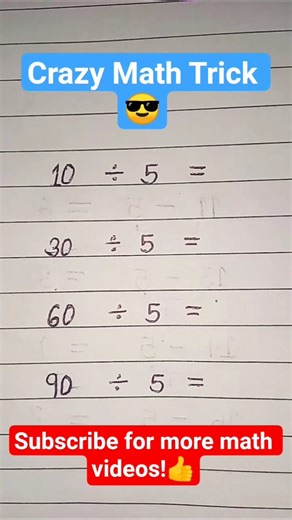 Crazy Math Trick
😎
10 ÷ 5 =
30 ÷ 5 =
60 ÷ 5 =
90 ÷ 5 =
Subscribe for more math
videos!👍